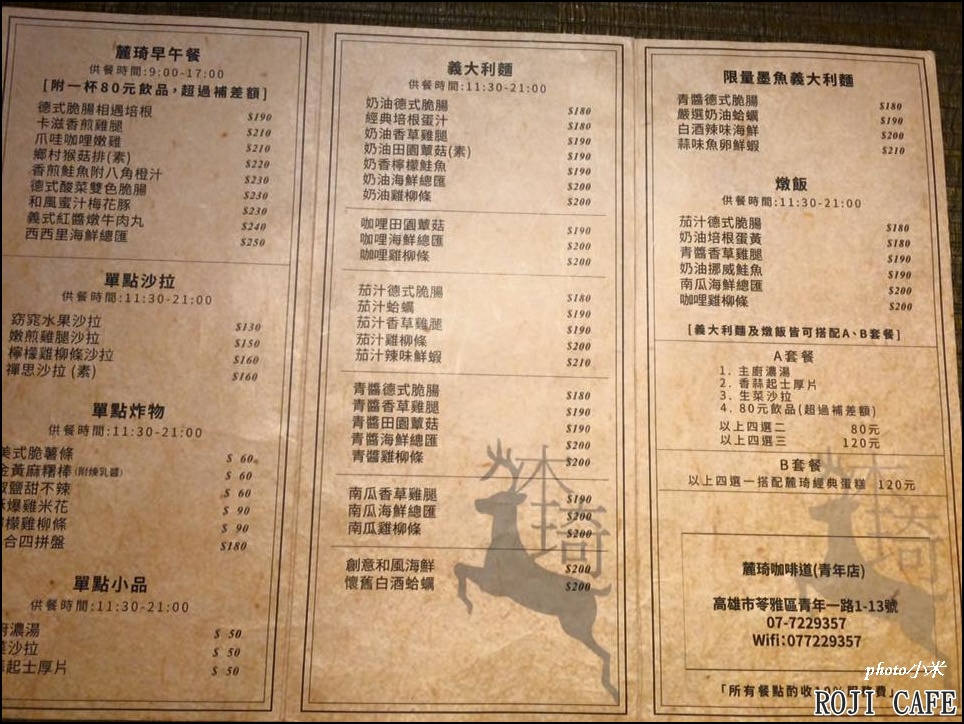 麓琦早午餐
供餐時間:9:00-17:00
[附一杯80元飲品,超過補差額]
德式脆腸相遇培根 $190
卡滋香煎雞腿 $210
爪哇咖哩嫩雞 $210
鄉村猴菇排(素) $220
香煎鮭魚附八角橙汁 $230
德式酸菜雙色脆腸 $230
和風蜜汁梅花豚 $230
義式紅醬燉牛肉丸 $240
西西里海鮮總匯 $250
單點沙拉
供餐時間:11:30-21:00
窈窕水果沙拉 $130
嫩煎雞腿沙拉 $150
檸檬雞柳條沙拉 $160
禪思沙拉(素) $160
單點炸物
供餐時間:11:30-21:00
美式脆薯條 $ 60
金黃麻糬棒(附煉乳醬) $ 60
鹽甜不辣 $ 60
爆雞米花 $ 90
檬雞柳條 $ 90
合四拼盤 $180
單點小品
供餐時間:11:30-21:00
廚濃湯 $ 50
菜沙拉 $ 50
起士厚片 $ 50
義大利麵
供餐時間:11:30-21:00
奶油德式脆腸 $180
經典培根蛋汁 $180
奶油香草雞腿 $190
奶油田園蕈菇(素) $190
奶香檸檬鮭魚 $190
奶油海鮮總匯 $200
奶油雞柳條 $200
咖哩田園蕈菇 $190
咖哩海鮮總匯 $200
咖哩雞柳條 $200
茄汁德式脆腸 $180
茄汁蛤蠣 $190
茄汁香草雞腿 $190
茄汁雞柳條 $200
茄汁辣味鮮蝦 $210
青醬德式脆腸 $180
青醬香草雞腿 $190
青醬田園蕈菇 $190
青醬海鮮總匯 $200
青醬雞柳條 $200
南瓜香草雞腿 $190
南瓜海鮮總匯 $200
南瓜雞柳條 $200
創意和風海鮮 $200
懷舊白酒蛤蠣 $200
限量墨魚義大利麵
青醬德式脆腸 $180
嚴選奶油蛤蠣 $190
白酒辣味海鮮 $200
蒜味魚卵鮮蝦 $210
燉飯
供餐時間:11:30-21:00
茄汁德式脆腸 $180
奶油培根蛋黃 $180
青醬香草雞腿 $190
奶油挪威鮭魚 $190
南瓜海鮮總匯 $200
咖哩雞柳條 $200
[義大利麵及燉飯皆可搭配A、B套餐]
A套餐
1. 主廚濃湯
2. 香蒜起士厚片
3. 生菜沙拉
4. 80元飲品(超過補差額)
以上四選二 80元
以上四選三 120元
B套餐
以上四選一搭配麓琦經典蛋糕 120元
麓琦咖啡道(青年店)
高雄市苓雅區青年一路1-13號
07-7229357
Wifi:077229357
「所有餐點酌收
費」
photo小米
ROJI CAFE